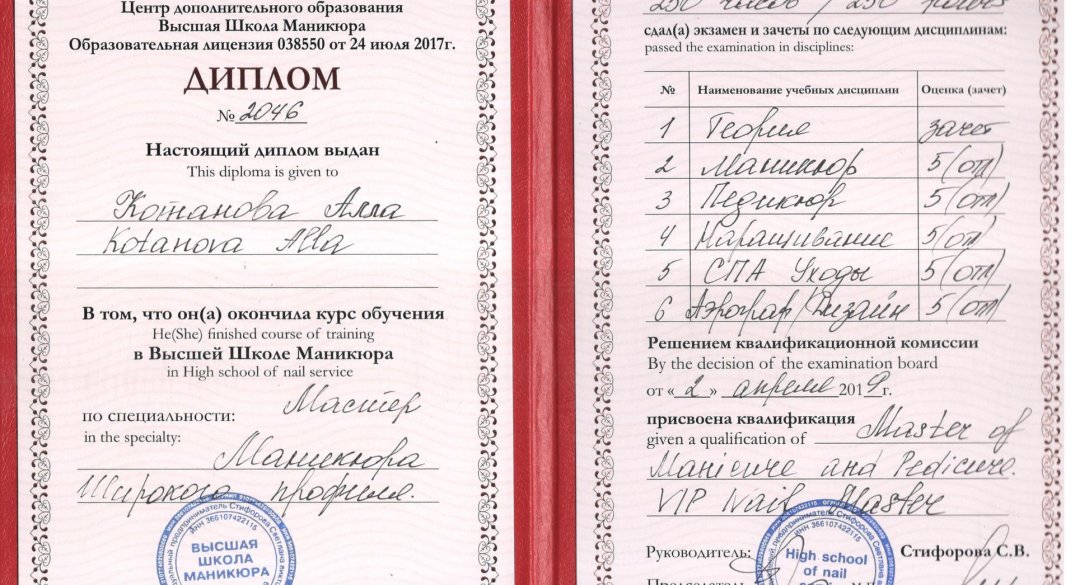 Центр дополнительного образования
Высшая Школа Маникюра
Образовательная лицензия 038550 от 24 июля 2017г.
ДИПЛОМ
№ 2046
Настоящий диплом выдан
This diploma is given to
Котанова Алла
Kotanova Alla
В том, что он(а) окончила курс обучения
He(She) finished course of training
в Высшей Школе Маникюра
in High school of nail service
по специальности: Мастер
in the specialty:
Маникюра
Широкого профиля.
ИНН 366107422115
ВЫСШАЯ
ШКОЛА
МАНИКЮРА
250 часов / 250 hours
сдал(а) экзамен и зачеты по следующим дисциплинам:
passed the examination in disciplines:
№ Наименование учебных дисциплин Оценка (зачет)
1 Теория зачет
2 Маникюр 5 (отл)
3 Педикюр 5 (отл)
4 Наращивание 5 (отл)
5 СПА Уходы 5 (отл)
6 Аэрограф/Дизайн 5 (отл)
Решением квалификационной комиссии
By the decision of the examination board
от « 2 » апреля 2019г.
присвоена квалификация
given a qualification of Master of
Manicure and Pedicure.
VIP Nail Master
Руководитель: Стифорова С.В.
High school
of nail
Председатель